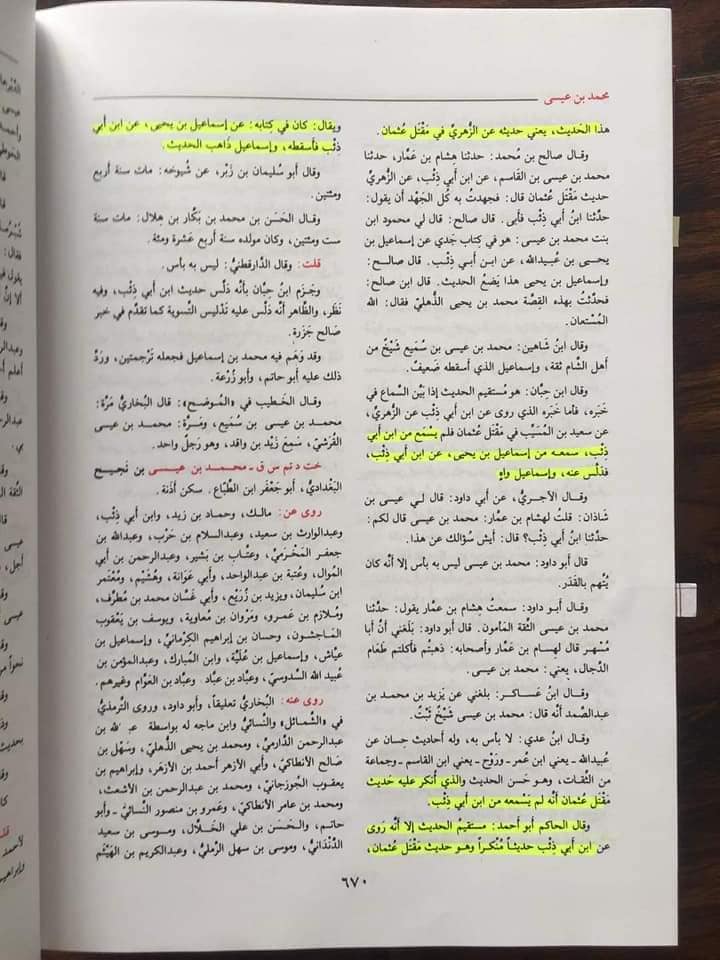 محمد بن عيسى
هذا الحديث، يعني حديثه عن الزُّهريِّ في مَقْتَل عُثمان.
وقال صالح بن مُحمد: حدثنا هِشام بن عَمَّار، حدثنا
محمد بن عيسى بن القَاسم، عن ابن أبي ذِئْب، عن الزُّهريِّ
حديث مَقْتَل عُثمان قال: فجهدتُ به كُل الجَهْد أن يقول:
حدَّثنا ابنُ أبي ذِئْب فأَبى. قال صالح: قال لي محمود ابن
بنت محمد بن عيسى: هو في كِتاب جَدي عن إسماعيل بن
يحيى بن عُبيدالله، عن ابن أبي ذِئْب. قال صالح:
وإسماعيل بن يحيى هذا يَضَعُ الحديث. قال ابن صالح:
فحدَّثتُ بهذه القِصَّة محمد بن يحيى الذُّهليَّ فقال: الله
المُسْتعان.
وقال ابنُ شاهين: محمد بن عيسى بن سُمَيع شَيْخٌ من
أهل الشَّام ثقة، وإسماعيل الذي أسقطه ضَعِيفٌ.
وقال ابن حِبَّان: هو مُستقيم الحديث إذا بَيَّن السَّماع في
خَبَره، فأما خَبَره الذي روى عن ابن أبي ذِئْب عن الزُّهريِّ،
عن سعيد بن المُسَيِّب في مَقْتَل عثمان فلم يسْمَع من ابن أبي
ذِئْب، سمعه من إسماعيل بن يحيى، عن ابن أبي ذِئْب،
فدَلَّس عنه، وإسماعيل واهٍ
وقال الآجريُّ، عن أبي داود: قال لي عيسى بن
شاذان: قلتُ لهشام بن عمَّار: محمد بن عيسى قال لكم:
حدَّثنا ابنُ أبي ذِئْب؟ قال: أيش سُؤالك عن هذا.
قال أبو داود: محمد بن عيسى ليس به بأس إلا أنَّه كان
يُتَّهم بالقَدَر.
وقال أبو داود: سمعتُ هِشام بن عمَّار يقول: حدَّثنا
محمد بن عيسى الثقة المأمون. قال أبو داود: بَلَغني أنَّ أبا
مُسْهر قال لهشام بن عَمَّار وأصحابه: ذهبتُم فأكلتم طَعَام
الدَّجال، يعني: محمد بن عيسى.
وقال ابنُ عَساكر: بلغني عن يَزيد بن محمد بن
عبدالصَّمد أنَّه قال: محمد بن عيسى شَيْخٌ ثَبْتٌ.
وقال ابنُ عدي: لا بأس به، وله أحاديث حِسان عن
عبيدالله - يعني ابن عمر - ورَوْح - يعني ابن القاسم - وجماعة
من الثِّقات، وهو حَسن الحديث والذي أُنكر عليه حَديث
مَقْتل عثمان أنَّه لم يَسْمعه من ابن أبي ذِئْب.
وقال الحاكم أبو أحمد: مستقيمُ الحديث إلا أنَّه رَوى
عن ابن أبي ذئب حديثاً مُنْكراً وهو حديث مَقْتل عُثمان،
ويقال: كان في كِتابه: عن إسماعيل بن يحيى، عن ابن أبي
ذِئْب فأسقطه، وإسماعيل ذَاهب الحديث.
وقال أبو سُليمان بن زَبْر، عن شُيوخه: مات سنة أربع
ومئتين.
وقال الحَسَن بن محمد بن بَكَّار بن هِلال: مات سنة
ست ومئتين، وكان مولده سنة أربع عَشْرة ومئة.
قلت: وقال الدَّارقطنيُّ: ليس به بأس.
وجَزَم ابنُ حِبَّان بأنَّه دَلَّس حديث ابن أبي ذِئْب، وفيه
نَظَر، والظَّاهر أنَّه دَلَّس عليه تَدْليس التَّسوية كما تقدَّم في خبر
صَالح جَزَرة.
وقد وَهِم فيه محمد بن إسماعيل فجعله تَرْجمتين، ورَدَّ
ذلك عليه أبو حاتم، وأبو زُرْعة.
وقال الخَطيب في «المُوضح»: قال البُخاري مَرَّة:
محمد بن عيسى بن سُميع، ومرَّة: محمد بن عيسى
القُرَشي، سَمِعَ زَيْد بن واقد، وهو رَجلٌ واحد.
خت د تم س ق - محمد بن عيسى بن نَجيح
البَغْداديُّ، أبو جَعْفر ابن الطَّبَّاع. سكن أَذَنَة.
روى عن: مالك، وحماد بن زيد، وابن أبي ذِئْب،
وعبدالوارث بن سعيد، وعبدالسلام بن حَرْب، وعبدالله بن
جعفر المَخْرَميِّ، وعتَّاب بن بَشير، وعبدالرحمن بن أبي
المَوال، وعُتبة بن عبدالواحد، وأبي عَوانة، وهُشَيْم، ومُعْتَمر
ابن سُليمان، ويزيد بن زُرَيْع، وأبي غَسَّان محمد بن مُطرِّف،
ومُلازم بن عَمرو، ومَرْوان بن مُعاوية، ويوسف بن يَعْقوب
الماجشون، وحسان بن إبراهيم الكِرْمانيِّ، وإسماعيل بن
عيَّاش، وإسماعيل بن عُلَيَّة، وابن المُبارك، وعبدالمؤمن بن
عبيد الله السَّدوسيِّ، وعبَّاد بن عبَّاد. وعباد بن العَوَّام وغيرهم.
روى عنه: البُخاريُّ تعليقاً، وأبو داود، وروى التِّرمذيُّ
في «الشَّمائل» والنَّسائيُّ وابن ماجه له بواسطة عبدالله بن
عبدالرحمن الدَّارميُّ، ومحمد بن يحيى الذُّهليُّ، وسَهْل بن
صَالح الأنطاكيُّ، وأبي الأزهر أحمد بن الأزهر، وإبراهيم بن
يعقوب الجُوزجانيُّ، ومحمد بن عبدالرحمن بن الأشعث،
ومحمد بن عامر الأنطاكيُّ، وعَمرو بن منصور النَّسائيُّ - وأبو
حاتم، والحَسَن بن علي الخَلَّال، وموسى بن سعيد
الدَّنْدانيُّ، وموسى بن سهل الرَّمليُّ، وعبدالكريم بن الهَيْثم
٦٧٠